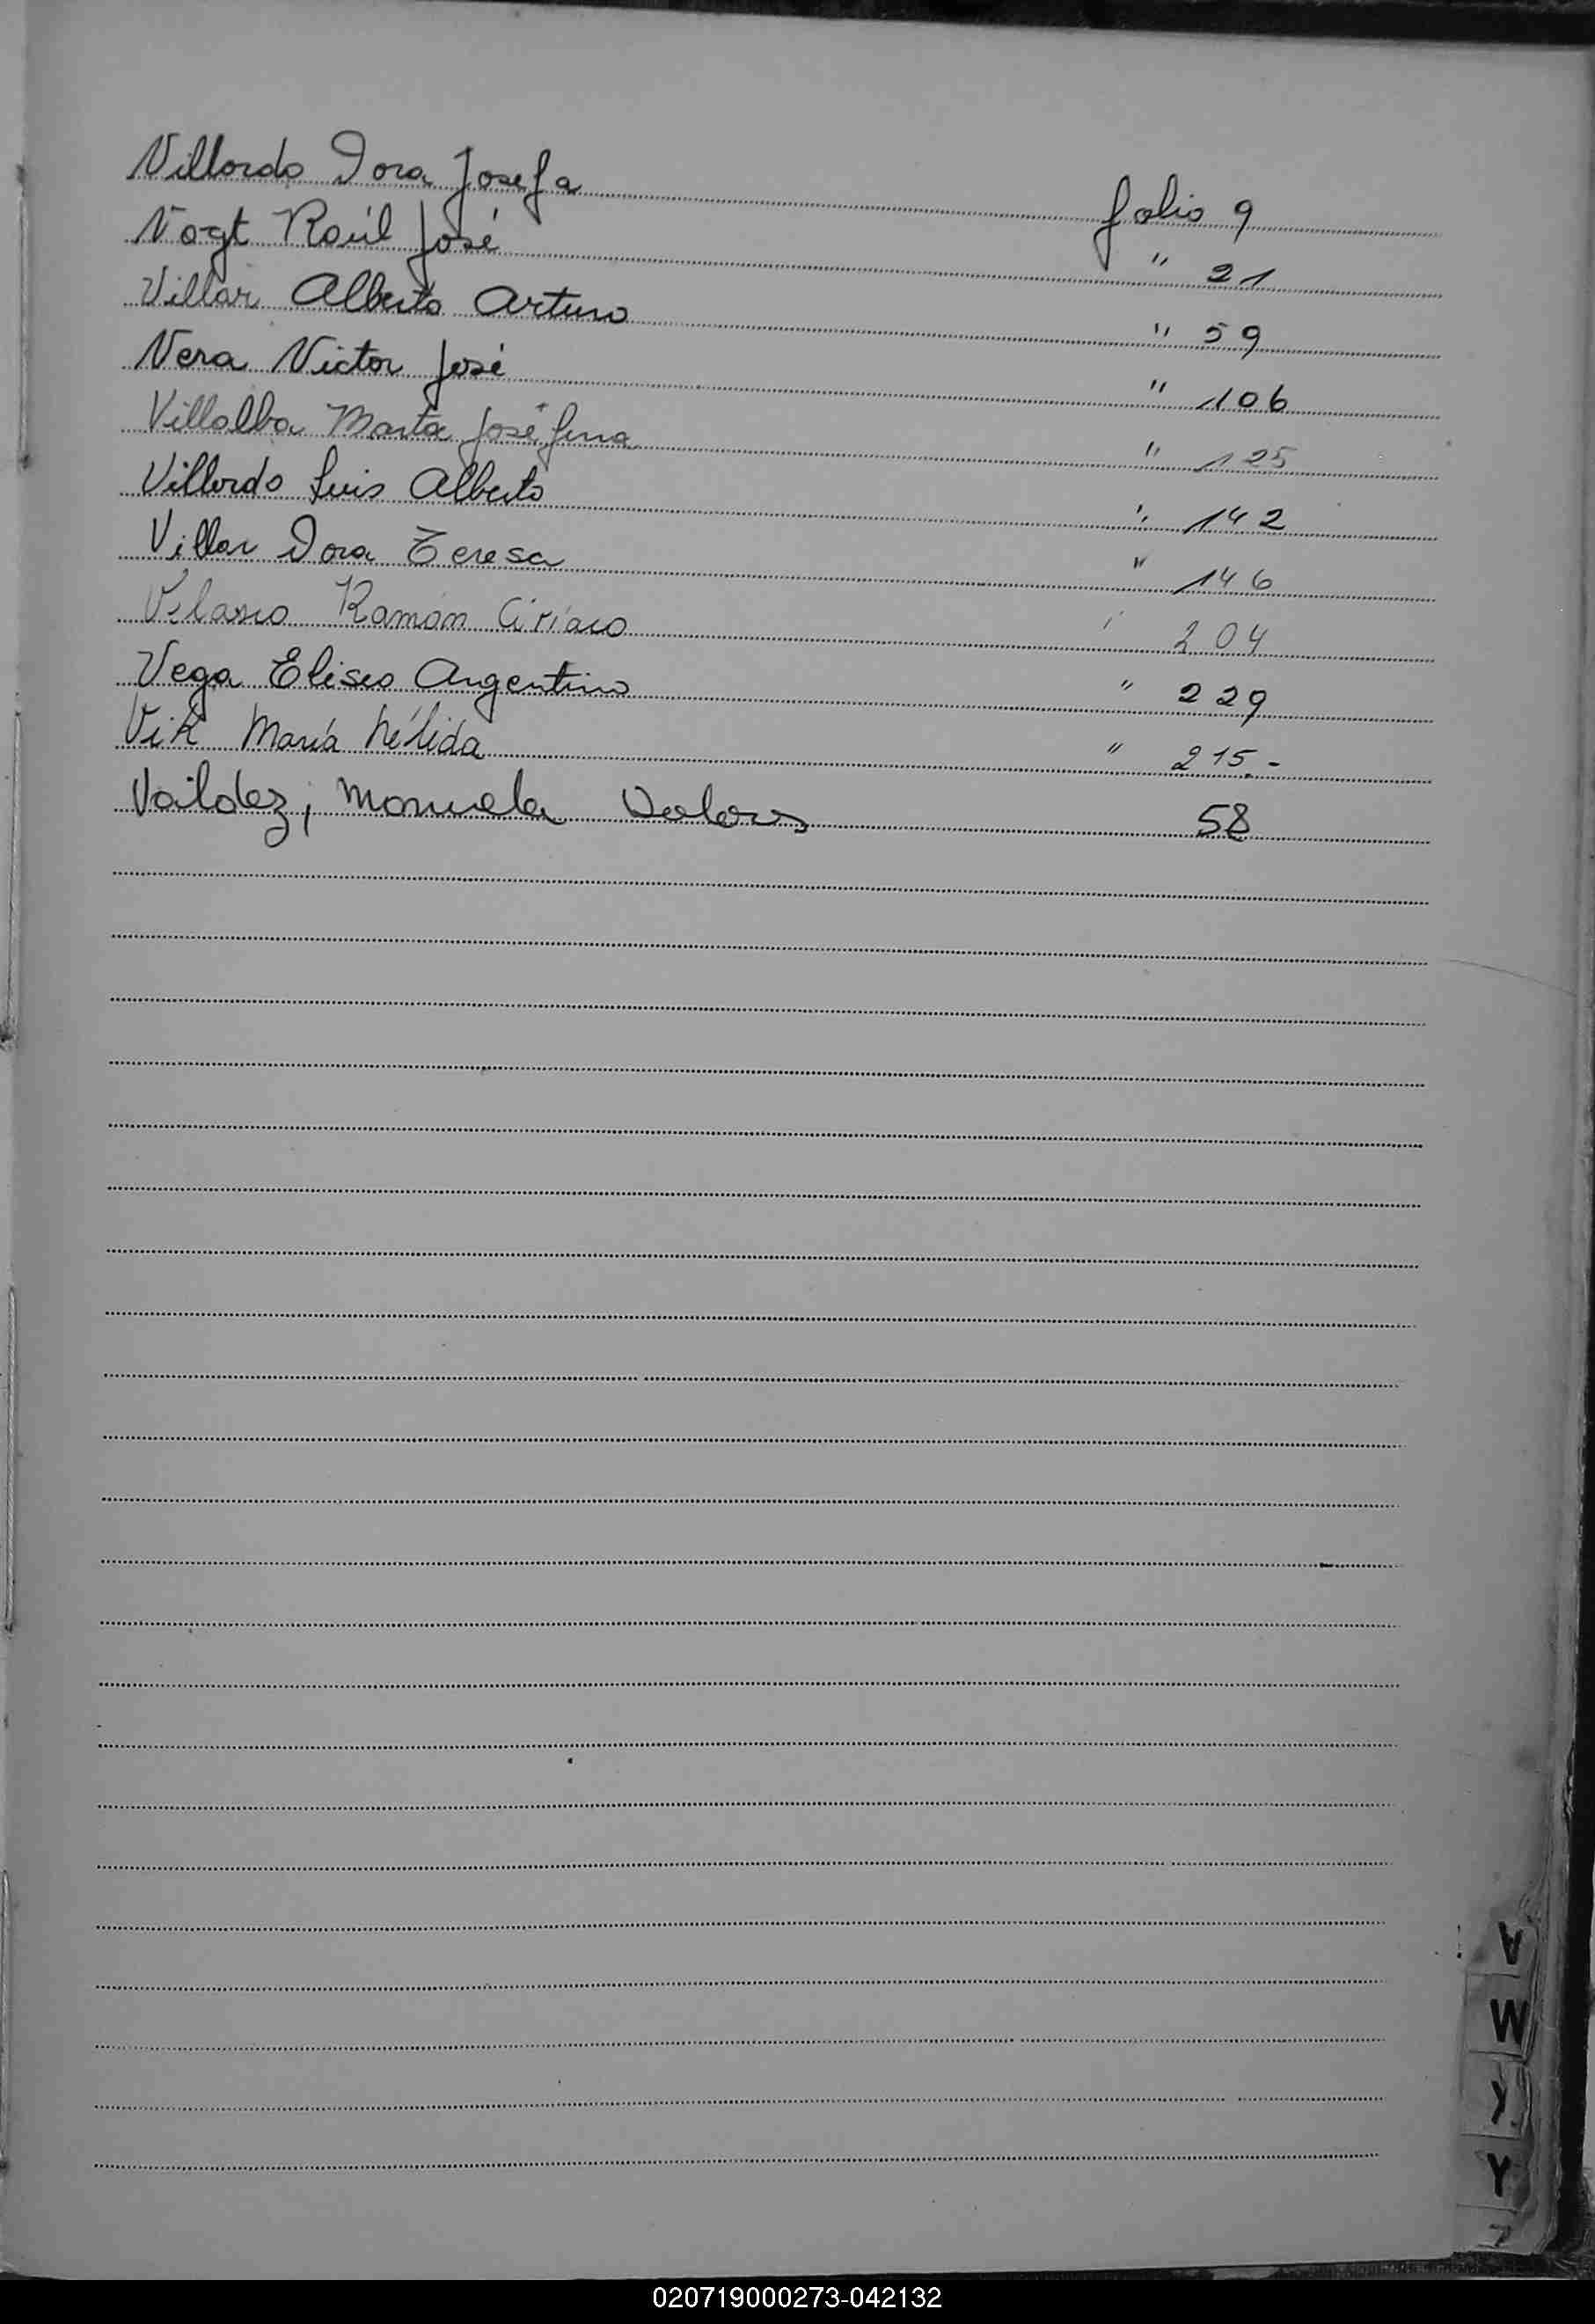 Villordo Dora Josefa folio 9
Vogt Raúl José " 21
Villar Alberto Arturo " 59
Vera Victor José " 106
Villalba Marta Joséfina " 125
Villordo Luis Alberto " 142
Villar Dora Teresa " 146
Velasco Ramón Ciríaco " 204
Vega Eliseo Argentino " 229
Vik María Nélida " 215.-
Valdez, Manuela Dolores 58
V
W
Y
Z
020719000273-042132